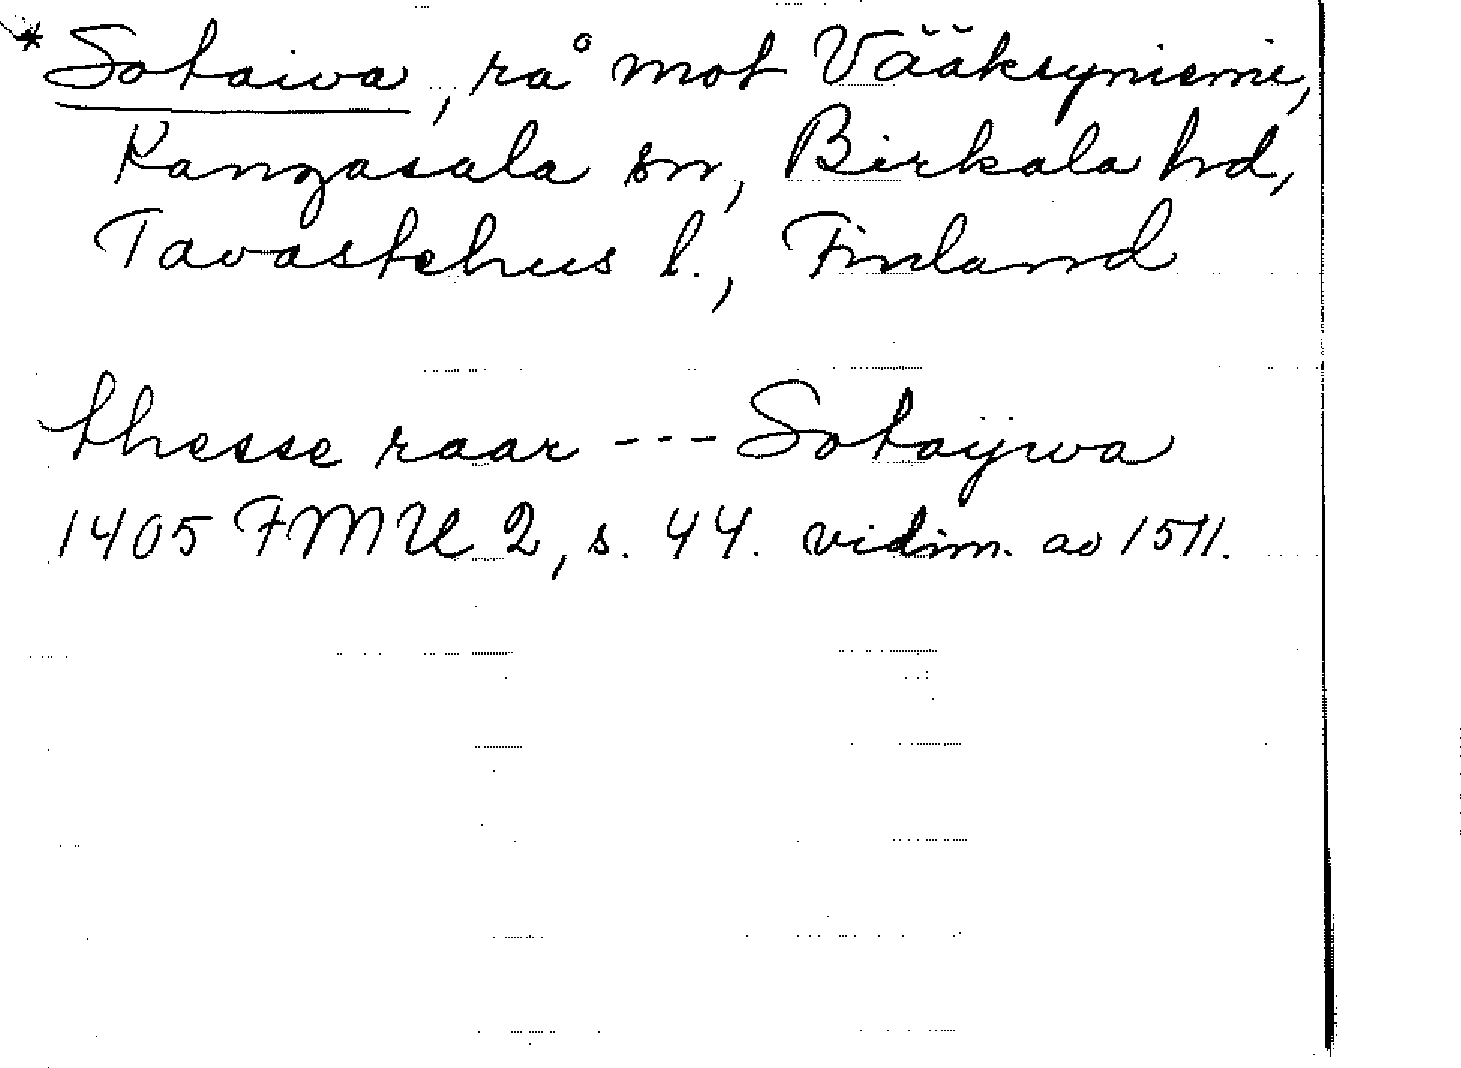 * Sotaiva, rå mot Vääksyniemi,
Kangasala sn, Birkala hd,
Tavastehus l., Finland
thesse raar --- Sotaÿwa
1405 FMU 2, s. 44. vidim. av 1511.